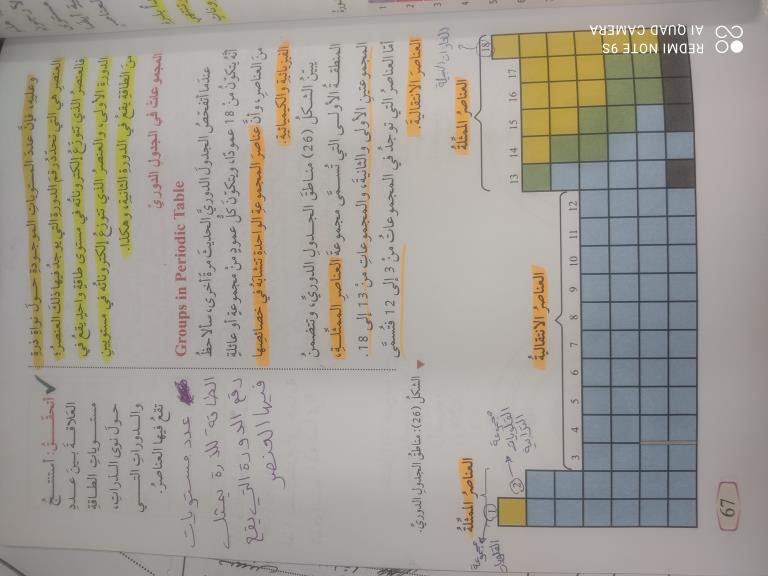 وعليه، فإن عدد المستويات الموجودة حول نواة ذرة
العنصر هي التي تحدد رقم الدورة التي يوجد فيها ذلك العنصر؛
فالعنصر الذي تتوزع إلكتروناته في مستوى طاقة واحد يقع في
الدورة الأولى، والعنصر الذي تتوزع إلكتروناته في مستويين
من الطاقة يقع في الدورة الثانية، وهكذا.
المجموعات في الجدول الدوري
Groups in Periodic Table
عندما أتفحص الجدول الدوري الحديث مرة أخرى، سألاحظ
أنه يتكون من 18 عمودًا، ويتكون كل عمود من مجموعة أو عائلة
من العناصر، وأن عناصر المجموعة الواحدة تتشابه في خصائصها
الفيزيائية والكيميائية.
يبين الشكل (26) مناطق الجدول الدوري، وتتضمن
المنطقة الأولى التي تسمى مجموعة العناصر الممثلة،
المجموعتين الأولى والثانية، والمجموعات من 13 إلى 18.
أما العناصر التي توجد في المجموعات من 3 إلى 12 فتسمى
العناصر الانتقالية.
أتحقق: أستنتج
العلاقة بين عدد
مستويات الطاقة
حول نوى الذرات،
والدورات التي
تقع فيها العناصر.
عدد مستويات
الطاقة للذرة يمثل
رقم الدورة التي يقع
فيها العنصر
الشكل (26): مناطق الجدول الدوري.
العناصر الممثلة
1
2
مجموعة
القلويات
الترابية
مجموعة
القلويات
العناصر الانتقالية
3 4 5 6 7 8 9 10 11 12
العناصر الممثلة
13 14 15 16 17 18
67
REDMI NOTE 9S
AI QUAD CAMERA